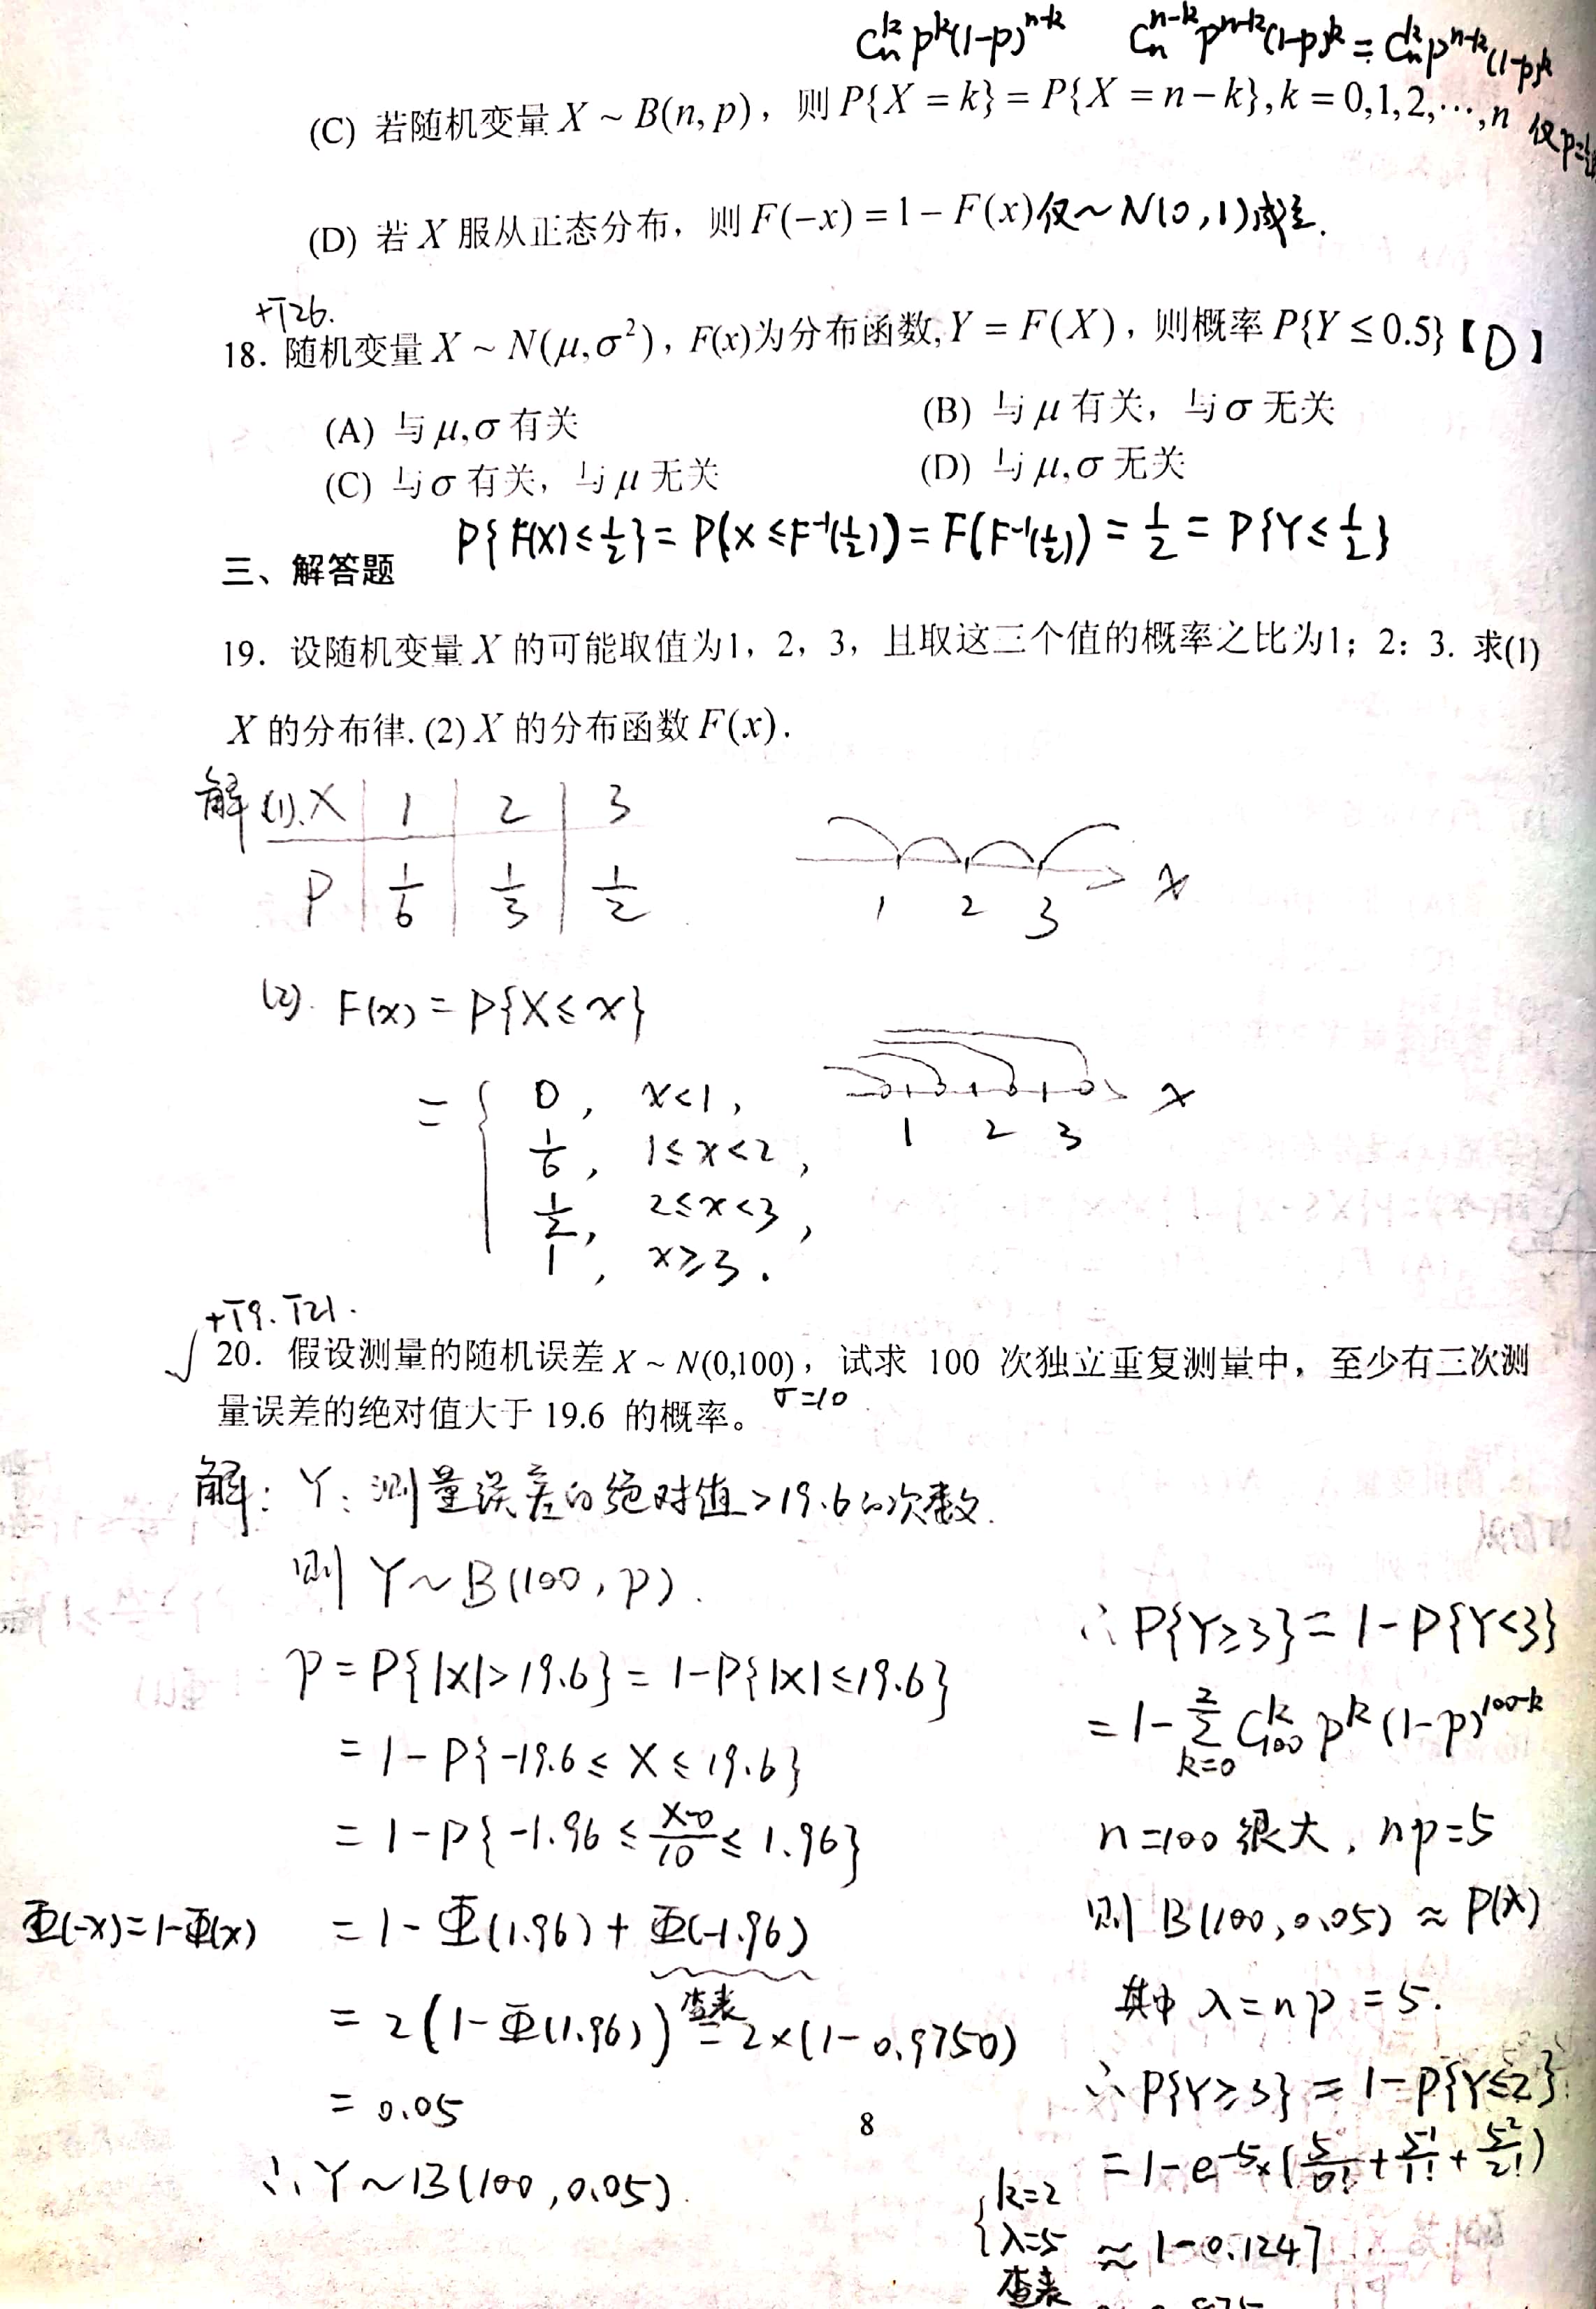 C_n^k p^k(1-p)^{n-k}   C_n^{n-k} p^{n-k}(1-p)^k = C_n^k p^{n-k}(1-p)^k
(C) 若随机变量 X ~ B(n, p)，则 P{X = k} = P{X = n − k}, k = 0,1,2,⋯,n 仅p=
(D) 若 X 服从正态分布，则 F(−x) = 1 − F(x) 仅~N(0,1)成立.
+T26.
18. 随机变量 X ~ N(μ,σ²)，F(x)为分布函数, Y = F(X)，则概率 P{Y ≤ 0.5}【D】
(A) 与 μ,σ 有关 (B) 与 μ 有关，与 σ 无关
(C) 与 σ 有关，与 μ 无关 (D) 与 μ,σ 无关
P{F(X)≤1/2} = P(X ≤F⁻¹(1/2)) = F(F⁻¹(1/2)) = 1/2 = P{Y≤1/2}
三、解答题
19. 设随机变量 X 的可能取值为1，2，3，且取这三个值的概率之比为1；2：3. 求(1)
X 的分布律. (2) X 的分布函数 F(x).
解 (1). X | 1 | 2 | 3
P | 1/6 | 1/3 | 1/2
1 2 3 x
(2). F(x) = P{X≤x}
= { 0, x<1,
1/6, 1≤x<2,
1/2, 2≤x<3,
1, x≥3.
1 2 3 x
+T9. T21.
√ 20. 假设测量的随机误差 X ~ N(0,100)，试求 100 次独立重复测量中，至少有三次测
量误差的绝对值大于 19.6 的概率。 σ=10
解: Y: 测量误差的绝对值>19.6的次数.
则 Y~B(100, p).
p = P{|X|>19.6} = 1-P{|X|≤19.6}
= 1-P{-19.6≤X≤19.6}
= 1-P{-1.96≤(X-0)/10≤1.96}
Φ(-x)=1-Φ(x) = 1-Φ(1.96)+Φ(-1.96)
= 2(1-Φ(1.96)) 查表= 2×(1-0.9750)
= 0.05
∴ Y~B(100, 0.05).
∴ P{Y≥3} = 1-P{Y<3}
= 1-∑_{k=0}^{2} C_{100}^k p^k (1-p)^{100-k}
n=100 很大, np=5
则 B(100, 0.05) ≈ P(λ)
其中 λ=np=5.
∴ P{Y≥3} = 1-P{Y≤2}
= 1-e^{-5}×(5^0/0! + 5^1/1! + 5^2/2!)
{k=2
λ=5 ≈ 1-0.1247
查表
8